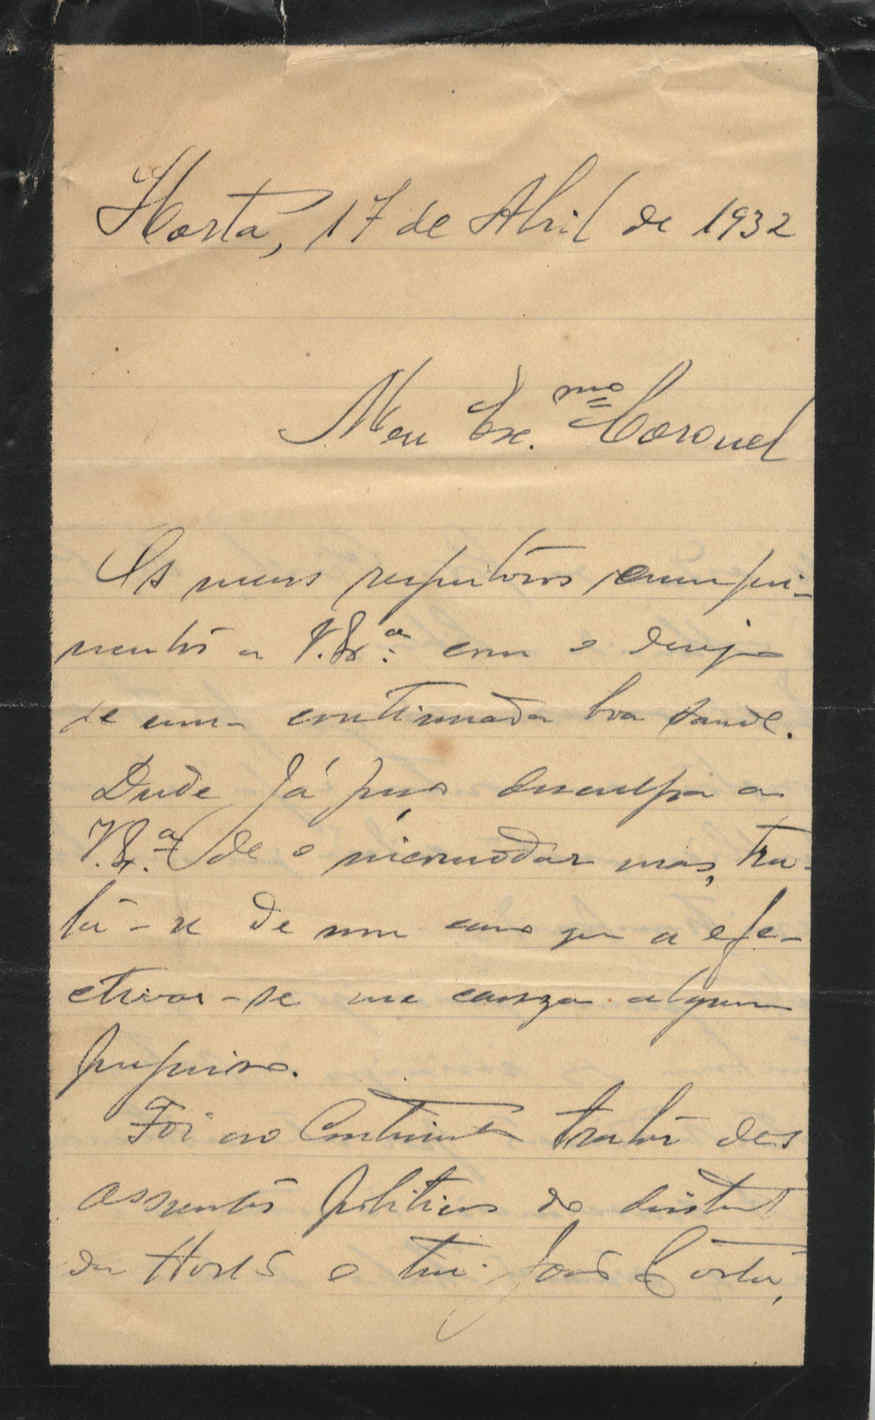 Horta, 17 de Abril de 1932
Meu Ex.mo Coronel
Os meus respeitosos cumpri-
mentos a V. Ex.a com o desejo
de uma continuada boa saude.
Desde já peço desculpa a
V. Ex.a de o incomodar mas, tra-
ta-se de um caso que a efe-
ctivar-se me causza algum
prejuizo.
Foi ao Continente tratar dos
assuntos politicos do distrito
da Horta o ten. João Costa,